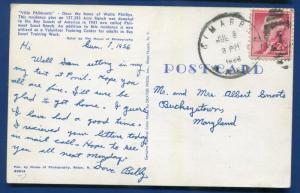 "Villa Philmonte" - Once the home of Waite Phillips.
This residence plus an 127,395 Acre Ranch was donated
to the Boy Scouts of America in 1941 and is now
Scout Ranch. In addition this residence is now
utilized as a Volunteer Training Center for adults in Boy
Scout Training Work.
Hi, June 7, 1956
Well I am sitting in my
tent at Phil. Hope you
are fine. I sure will be
glad to get home. I guess
I have lots of work to do.
I received your letter today
in mail call. Hope to see
you all next Monday.
Love Billy
CIMARRON
JUL 8
3 PM
1956
POSTCARD
Mr. and Mrs Albert Smoots
Buckeystown
Maryland
Pub. by House of Photography, Raton, N.